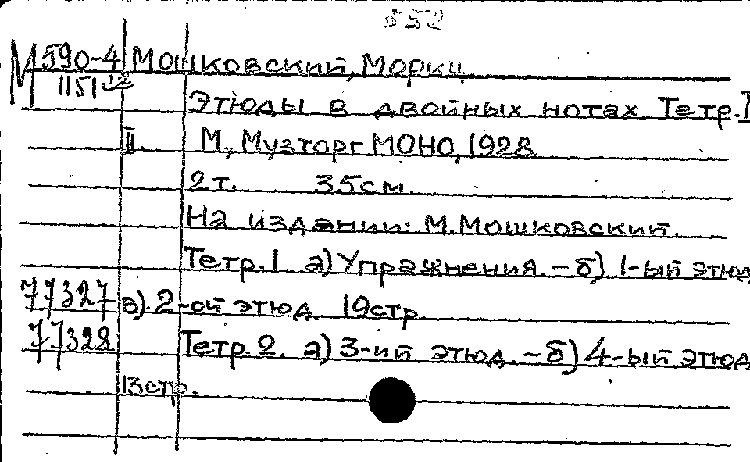 552
М 590-4 Мошковский, Мориц
1151
Этюды в двойных нотах Тетр. I
II. М, Музторг МОНО, 1928
2 т. 35 см
На издании: М. Мошковский.
Тетр. 1 а) Упражнения – б) 1-ый этюд
77327 в) 2-ой этюд 19 стр.
77328 Тетр 2. а) 3-ий этюд – б) 4-ый этюд
13 стр.